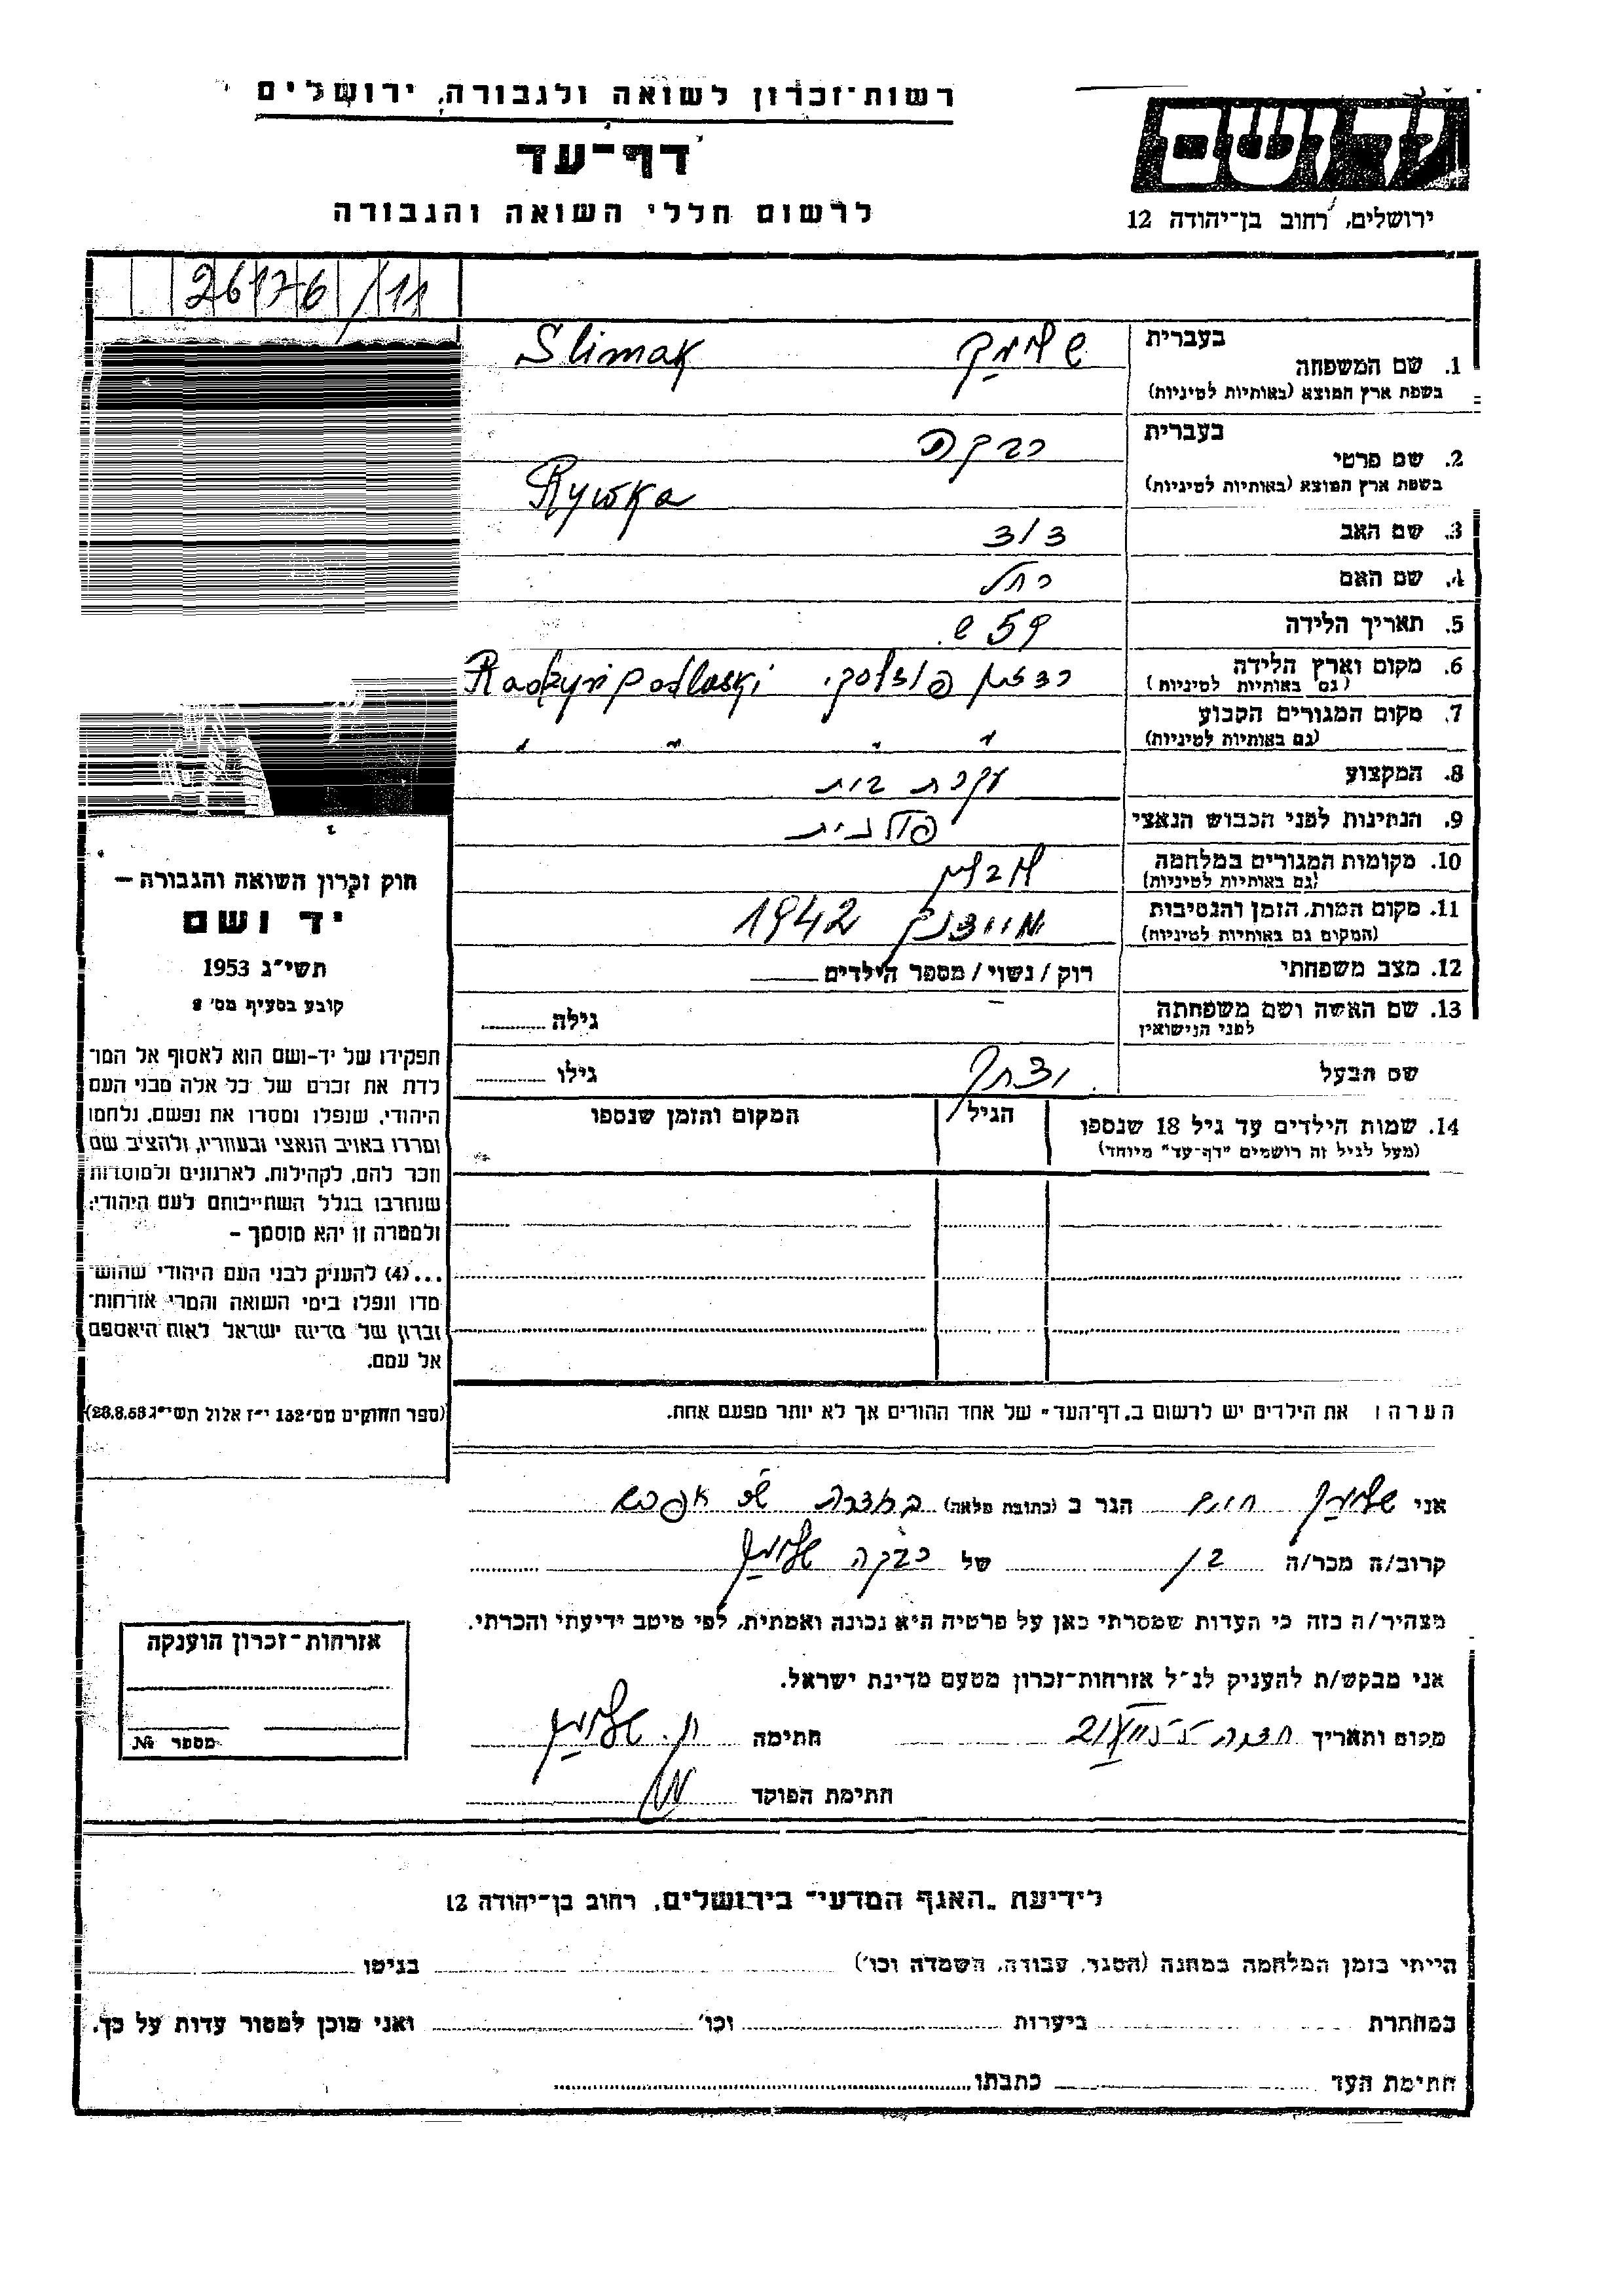 רשות-זכרון לשואה ולגבורה, ירושלים
דף-עד
לרשום חללי השואה והגבורה
יד ושם
ירושלים, רחוב בן-יהודה 12
26176/11
בעברית
1. שם המשפחה
בשפת ארץ המוצא (באותיות לטיניות)
שלימק Slimak
בעברית
2. שם פרטי
בשפת ארץ המוצא (באותיות לטיניות)
רבקה
Rywka
3. שם האב
4. שם האם רחל
5. תאריך הלידה 59 ש.
6. מקום וארץ הלידה
(גם באותיות לטיניות)
Radzyń podlaski
7. מקום המגורים הקבוע
(גם באותיות לטיניות)
" " " "
8. המקצוע עקרת בית
9. הנתינות לפני הכבוש הנאצי פולנית
10. מקומות המגורים במלחמה
(גם באותיות לטיניות)
11. מקום המות, הזמן והנסיבות
(המקום גם באותיות לטיניות)
מיידנק 1942
12. מצב משפחתי רוק / נשוי / מספר הילדים
13. שם האשה ושם משפחתה
לפני הנישואין
גילה
שם הבעל יצחק גילו
14. שמות הילדים עד גיל 18 שנספו
(מעל לגיל זה רושמים "דף-עד" מיוחד)
הגיל
המקום והזמן שנספו
חוק זכרון השואה והגבורה –
יד ושם
תשי"ג 1953
קובע בסעיף מס' 2
תפקידו של יד-ושם הוא לאסוף אל המו-
לדת את זכרם של כל אלה מבני העם
היהודי, שנפלו ומסרו את נפשם, נלחמו
ומרדו באויב הנאצי ובעוזריו, ולהציב שם
וזכר להם, לקהילות, לארגונים ולמוסדות
שנחרבו בגלל השתייכותם לעם היהודי;
ולמטרה זו יהא מוסמך –
...(4) להעניק לבני העם היהודי שהוש-
מדו ונפלו בימי השואה והמרי אזרחות-
זכרון של מדינת ישראל לאות היאספם
אל עמם.
(ספר החוקים מס' 132 י"ז אלול תשי"ג 28.8.53)
הערה: את הילדים יש לרשום ב"דף-העד" של אחד ההורים אך לא יותר מפעם אחת.
אני שלימק חיים הגר ב (כתובת מלאה)
קרוב/ה מכר/ה בן של רבקה שלימק
מצהיר/ה בזה כי העדות שמסרתי כאן על פרטיה היא נכונה ואמתית, לפי מיטב ידיעתי והכרתי.
אני מבקש/ת להעניק לנ"ל אזרחות-זכרון מטעם מדינת ישראל.
מקום ותאריך חתימה ח. שלימק
חתימת הפוקד
אזרחות-זכרון הוענקה
מספר №
לידיעת "האגף המדעי" בירושלים, רחוב בן-יהודה 12
הייתי בזמן המלחמה במחנה (הסגר, עבודה, השמדה וכו') בגיטו
במחתרת ביערות וכו' ואני מוכן למסור עדות על כך.
חתימת העד כתבתו